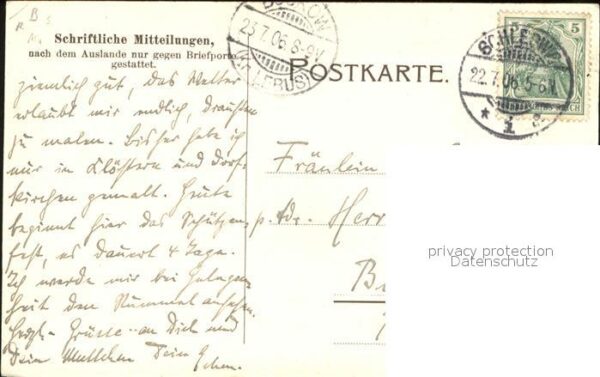 Schriftliche Mitteilungen,
nach dem Auslande nur gegen Briefporto
gestattet.
POSTKARTE.
BUCKOW
23.7.06.8-9V.
(KR. LEBUS)
SCHLESWIG
22.7.06.5-6N.
* 1 a
5 5
ziemlich gut, das Wetter
erlaubt mir endlich, draußen
zu malen. Bisher habe ich
nur in Klöstern und Dorf-
kirchen gemalt. Heute
beginnt hier das Schützen-
fest, es dauert 4 Tage.
Ich werde mir bei Gelegen-
heit den Rummel ansehen.
Herzl. Grüsse an Dich und
Dein Muttchen Dein
Fräulein
p. Adr. Herr
B
privacy protection
Datenschutz